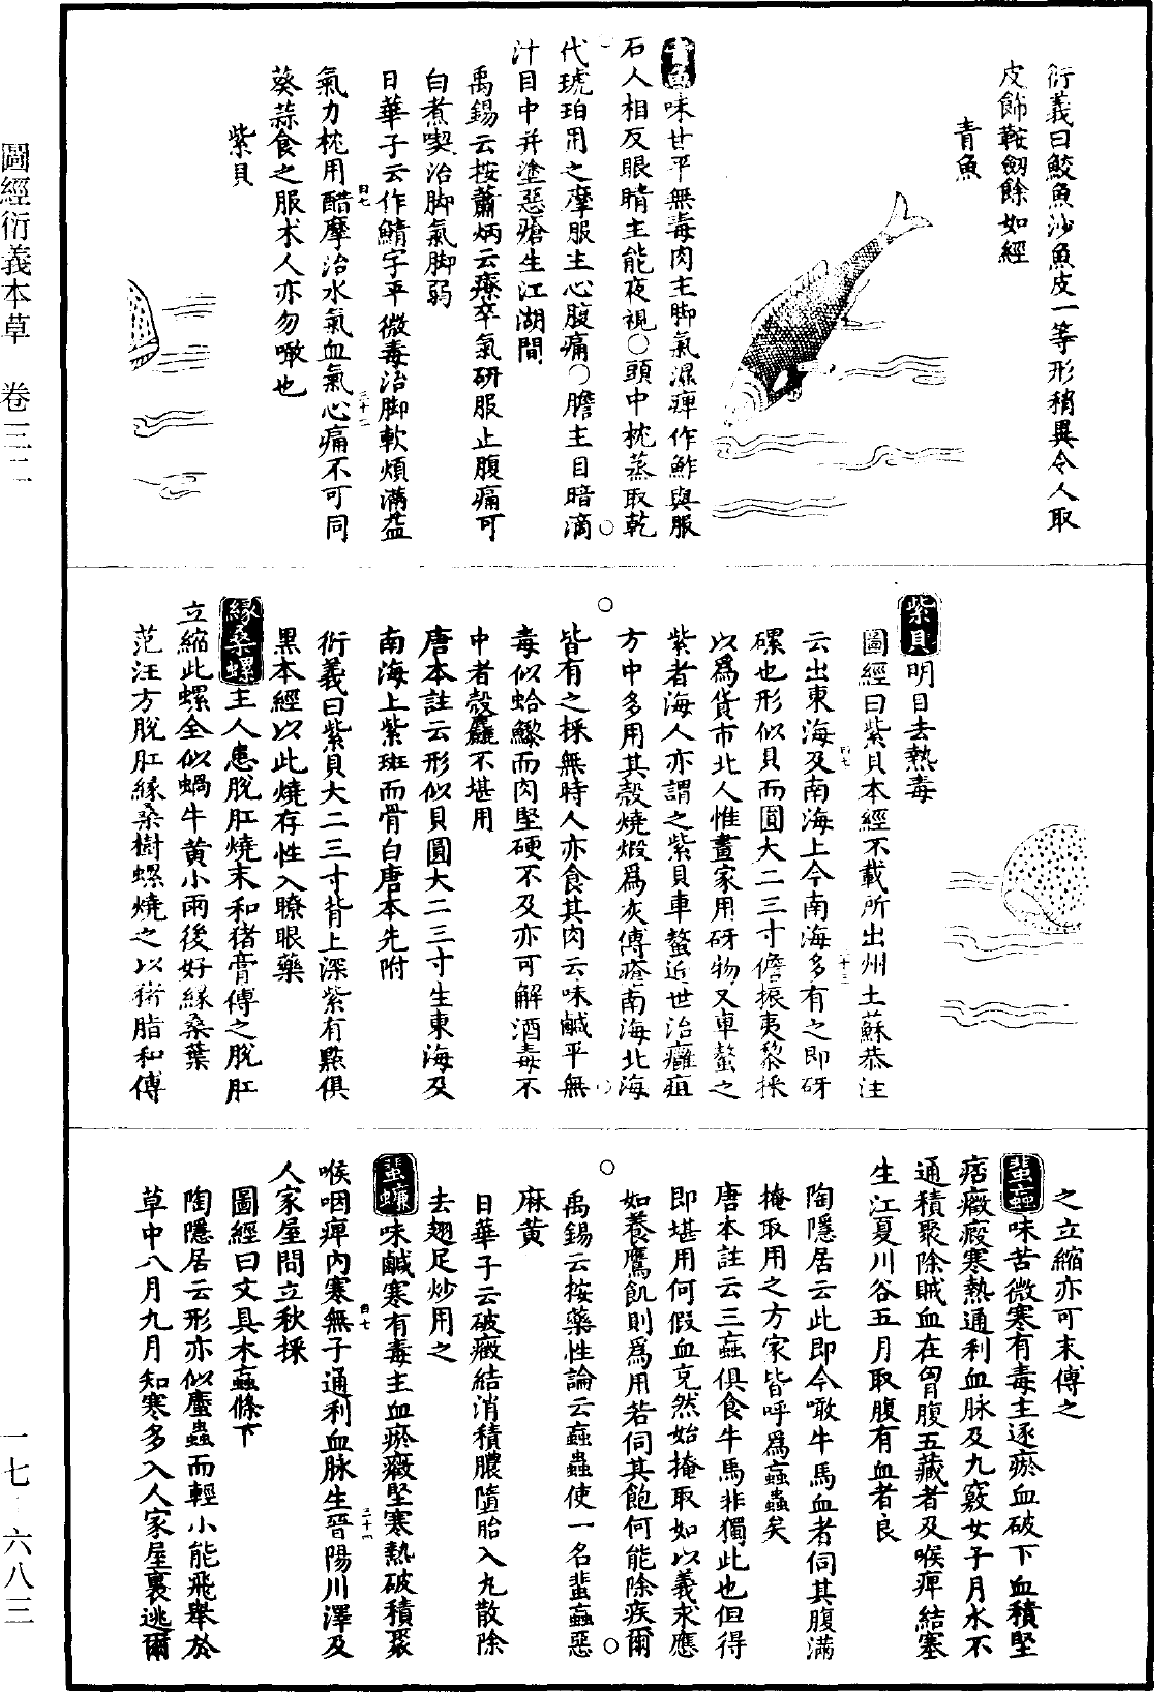 圖經衍義本草　卷三二
一七·六八三
衍義曰鮫魚沙魚皮一等形稍異今人取
皮飾鞍劒餘如經
青魚
青魚味甘平無毒肉主脚氣濕痺作鮓與服
石人相反眼睛主能夜視○頭中枕蒸取乾
代琥珀用之摩服主心腹痛○膽主目暗滴
汁目中并塗惡瘡生江湖間
禹錫云按蕭炳云療卒氣研服止腹痛可
白煮喫治脚氣脚弱
日華子云作鯖字平微毒治脚軟煩滿益
氣力枕用醋摩治水氣血氣心痛不可同
葵蒜食之服术人亦勿噉也
紫貝
紫貝明目去熱毒
圖經曰紫貝本經不載所出州土蘇恭注
云出東海及南海上今南海多有之即砑
螺也形似貝而圓大二三寸儋振夷黎採
以爲貨市北人惟畫家用砑物又車螯之
紫者海人亦謂之紫貝車螯近世治癰疽
方中多用其殼燒煅爲灰傅瘡南海北海
皆有之採無時人亦食其肉云味鹹平無
毒似蛤蠣而肉堅硬不及亦可解酒毒不
中者殼麤不堪用
唐本註云形似貝圓大二三寸生東海及
南海上紫斑而骨白唐本先附
衍義曰紫貝大二三寸背上深紫有點俱
黑本經以此燒存性入瞭眼藥
緣桑螺主人患脫肛燒末和猪膏傅之脫肛
立縮此螺全似蝸牛黄小雨後好緣桑葉
范汪方脫肛緣桑樹螺燒之以猪脂和傅
之立縮亦可末傅之
蜚蝱味苦微寒有毒主逐瘀血破下血積堅
痞癥瘕寒熱通利血脉及九竅女子月水不
通積聚除賊血在胷腹五藏者及喉痺結塞
生江夏川谷五月取腹有血者良
陶隱居云此即今噉牛馬血者伺其腹滿
掩取用之方家皆呼爲蝱蟲矣
唐本註云三蝱俱食牛馬非獨此也但得
即堪用何假血充然始掩取如以義求應
如養鷹飢則爲用若伺其飽何能除疾爾
禹錫云按藥性論云蝱蟲使一名蜚蝱惡
麻黄
日華子云破癥結消積膿墮胎入丸散除
去翅足炒用之
蜚蠊味鹹寒有毒主血瘀癥堅寒熱破積聚
喉咽痺内寒無子通利血脉生晉陽川澤及
人家屋間立秋採
圖經曰文具木蝱條下
陶隱居云形亦似䗪蟲而輕小能飛舉於
草中八月九月知寒多入人家屋裏逃爾